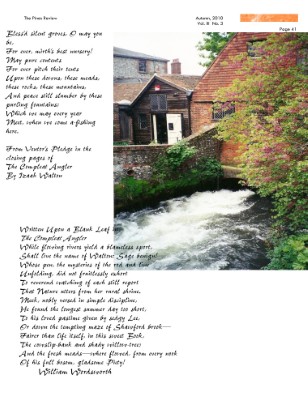 The Pines Review
Autumn, 2010
Vol. 8 No. 3
Page 41
Bless'd silent groves, O may you
be,
For ever, mirth's best nursery!
May pure contents
For ever pitch their tents
Upon these downs, these meads,
these rocks, these mountains;
And peace still slumber by these
purling fountains:
Which we may every year
Meet, when we come a-fishing
here.
From Venter's Pledge in the
closing pages of
The Compleat Angler
By Izaak Walton
Written Upon a Blank Leaf in
The Compleat Angler
While flowing rivers yield a blameless sport,
Shall live the name of Walton: Sage benign!
Whose pen, the mysteries of the rod and line
Unfolding, did not fruitlessly exhort
To reverend watching of each still report
That Nature utters from her rural shrine.
Meek, nobly versed in simple discipline,
He found the longest summer day too short,
To his loved pastime given by sedgy Lee,
Or down the tempting maze of Shawford brook—
Fairer than life itself, in this sweet Book,
The cowslip-bank and shady willow-tree;
And the fresh meads—where flowed, from every nook
Of his full bosom, gladsome Piety!
William Wordsworth